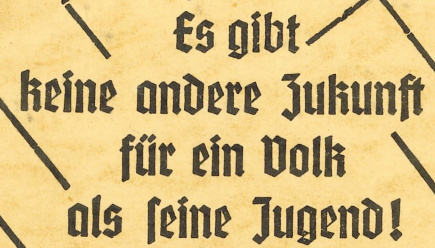 Es gibt
keine andere Zukunft
für ein Volk
als seine Jugend!